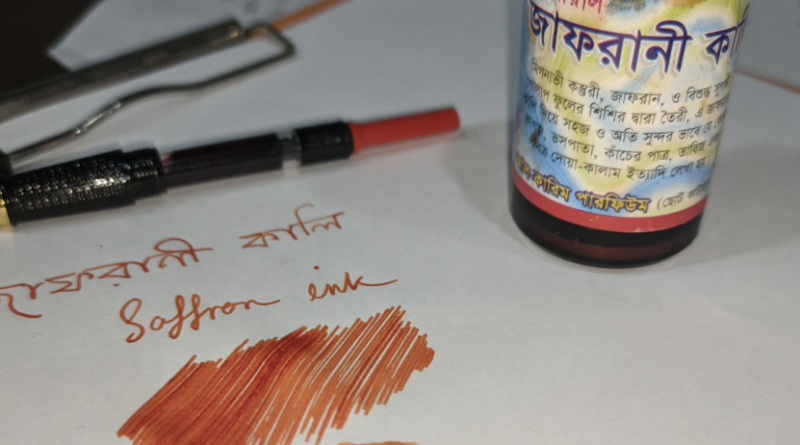 জাফরানী
মিগনাভী কস্তুরী, জাফরান, ও বিশুদ্ধ
ফুলের শিশির দ্বারা তৈরী, এ
দিয়ে সহজ ও অতি সুন্দর ভাবে
ভসপাতা, কাঁচের পাত্র, তাবিজ
দোয়া-কালাম ইত্যাদি লেখা
কারিম পারফিউম (ছোট
জাফরানী কালি
Saffron ink